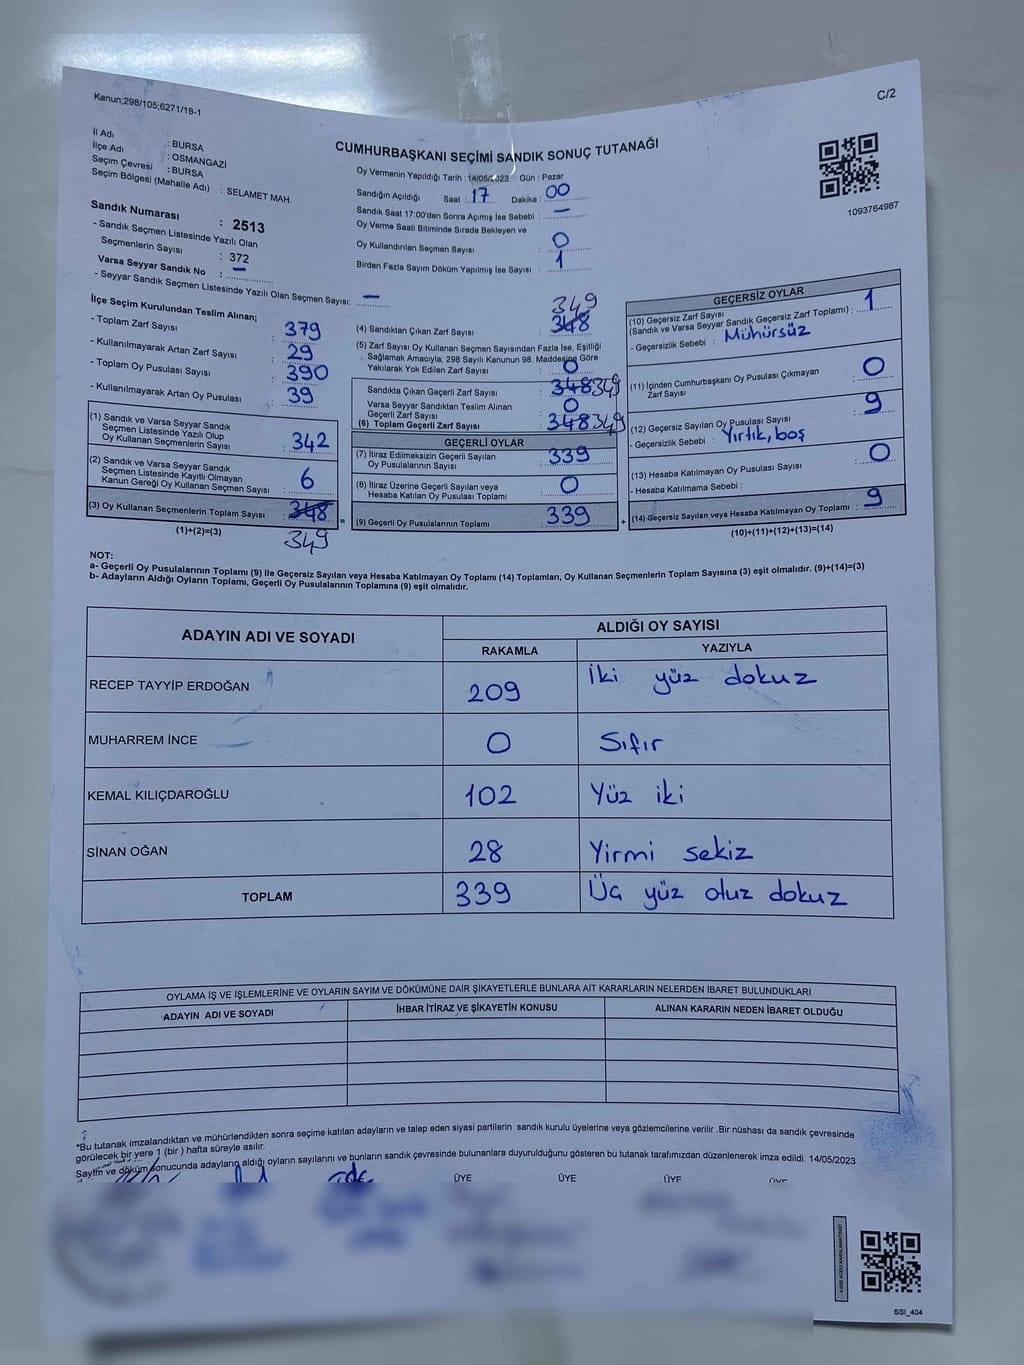 Kanun;298/105;6271/18-1
C/2
İl Adı : BURSA
İlçe Adı : OSMANGAZİ
Seçim Çevresi : BURSA
Seçim Bölgesi (Mahalle Adı) : SELAMET MAH.
Sandık Numarası : 2513
- Sandık Seçmen Listesinde Yazılı Olan
Seçmenlerin Sayısı : 372
Varsa Seyyar Sandık No : –
- Seyyar Sandık Seçmen Listesinde Yazılı Olan Seçmen Sayısı: –
CUMHURBAŞKANI SEÇİMİ SANDIK SONUÇ TUTANAĞI
Oy Vermenin Yapıldığı Tarih : 14/05/2023 Gün : Pazar
Sandığın Açıldığı Saat : 17 Dakika : 00
Sandık Saat 17:00'den Sonra Açımış İse Sebebi : –
Oy Verme Saati Bitiminde Sırada Bekleyen ve
Oy Kullandırılan Seçmen Sayısı : 0
Birden Fazla Sayım Döküm Yapılmış İse Sayısı : 1
1093764987
İlçe Seçim Kurulundan Teslim Alınan;
- Toplam Zarf Sayısı : 379
- Kullanılmayarak Artan Zarf Sayısı : 29
- Toplam Oy Pusulası Sayısı : 390
- Kullanılmayarak Artan Oy Pusulası : 39
(1) Sandık ve Varsa Seyyar Sandık
Seçmen Listesinde Yazılı Olup
Oy Kullanan Seçmenlerin Sayısı : 342
(2) Sandık ve Varsa Seyyar Sandık
Seçmen Listesinde Kayıtlı Olmayan
Kanun Gereği Oy Kullanan Seçmen Sayısı : 6
(3) Oy Kullanan Seçmenlerin Toplam Sayısı : 348
349
(1)+(2)=(3)
349
(4) Sandıktan Çıkan Zarf Sayısı : 348
(5) Zarf Sayısı Oy Kullanan Seçmen Sayısından Fazla İse, Eşitliği
Sağlamak Amacıyla; 298 Sayılı Kanunun 98. Maddesine Göre
Yakılarak Yok Edilen Zarf Sayısı : 0
Sandıkta Çıkan Geçerli Zarf Sayısı : 348 349
Varsa Seyyar Sandıktan Teslim Alınan
Geçerli Zarf Sayısı : 0
(6) Toplam Geçerli Zarf Sayısı : 348 349
GEÇERLİ OYLAR
(7) İtiraz Edilmeksizin Geçerli Sayılan
Oy Pusulalarının Sayısı : 339
(8) İtiraz Üzerine Geçerli Sayılan veya
Hesaba Katılan Oy Pusulası Toplamı : 0
= (9) Geçerli Oy Pusulalarının Toplamı : 339 +
GEÇERSİZ OYLAR
(10) Geçersiz Zarf Sayısı
(Sandık ve Varsa Seyyar Sandık Geçersiz Zarf Toplamı) : 1
- Geçersizlik Sebebi : Mühürsüz
(11) İçinden Cumhurbaşkanı Oy Pusulası Çıkmayan
Zarf Sayısı : 0
(12) Geçersiz Sayılan Oy Pusulası Sayısı : 9
- Geçersizlik Sebebi : Yırtık, boş
(13) Hesaba Katılmayan Oy Pusulası Sayısı : 0
- Hesaba Katılmama Sebebi :
(14) Geçersiz Sayılan veya Hesaba Katılmayan Oy Toplamı : 9
(10)+(11)+(12)+(13)=(14)
NOT:
a- Geçerli Oy Pusulalarının Toplamı (9) ile Geçersiz Sayılan veya Hesaba Katılmayan Oy Toplamı (14) Toplamları, Oy Kullanan Seçmenlerin Toplam Sayısına (3) eşit olmalıdır. (9)+(14)=(3)
b- Adayların Aldığı Oyların Toplamı, Geçerli Oy Pusulalarının Toplamına (9) eşit olmalıdır.
ADAYIN ADI VE SOYADI
ALDIĞI OY SAYISI
RAKAMLA YAZIYLA
RECEP TAYYİP ERDOĞAN 209 İki yüz dokuz
MUHARREM İNCE 0 Sıfır
KEMAL KILIÇDAROĞLU 102 Yüz iki
SİNAN OĞAN 28 Yirmi sekiz
TOPLAM 339 Üç yüz otuz dokuz
OYLAMA İŞ VE İŞLEMLERİNE VE OYLARIN SAYIM VE DÖKÜMÜNE DAİR ŞİKAYETLERLE BUNLARA AİT KARARLARIN NELERDEN İBARET BULUNDUKLARI
ADAYIN ADI VE SOYADI İHBAR İTİRAZ VE ŞİKAYETİN KONUSU ALINAN KARARIN NEDEN İBARET OLDUĞU
*Bu tutanak imzalandıktan ve mühürlendikten sonra seçime katılan adayların ve talep eden siyasi partilerin sandık kurulu üyelerine veya gözlemcilerine verilir .Bir nüshası da sandık çevresinde
görülecek bir yere 1 (bir ) hafta süreyle asılır.
Sayım ve döküm sonucunda adayların aldığı oyların sayılarını ve bunların sandık çevresinde bulunanlara duyurulduğunu gösteren bu tutanak tarafımızdan düzenlenerek imza edildi. 14/05/2023
ÜYE ÜYE ÜYE ÜYE
SSI_404